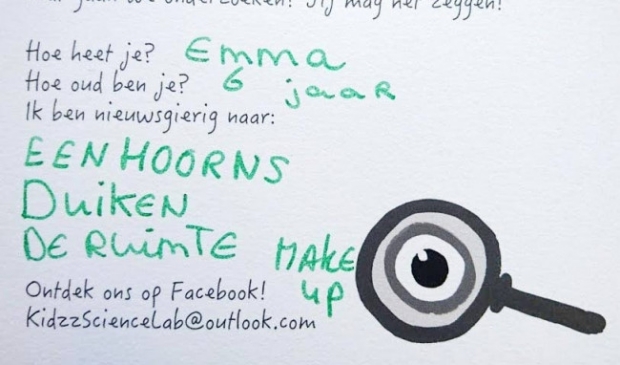 gaan we onderzoeken? Jij mag het zeggen!
Hoe heet je? Emma
Hoe oud ben je? 6 jaar
Ik ben nieuwsgierig naar:
EENHOORNS
DuikEN
DE RuimTE MAKE
up
Ontdek ons op Facebook!
KidzzScienceLab@outlook.com